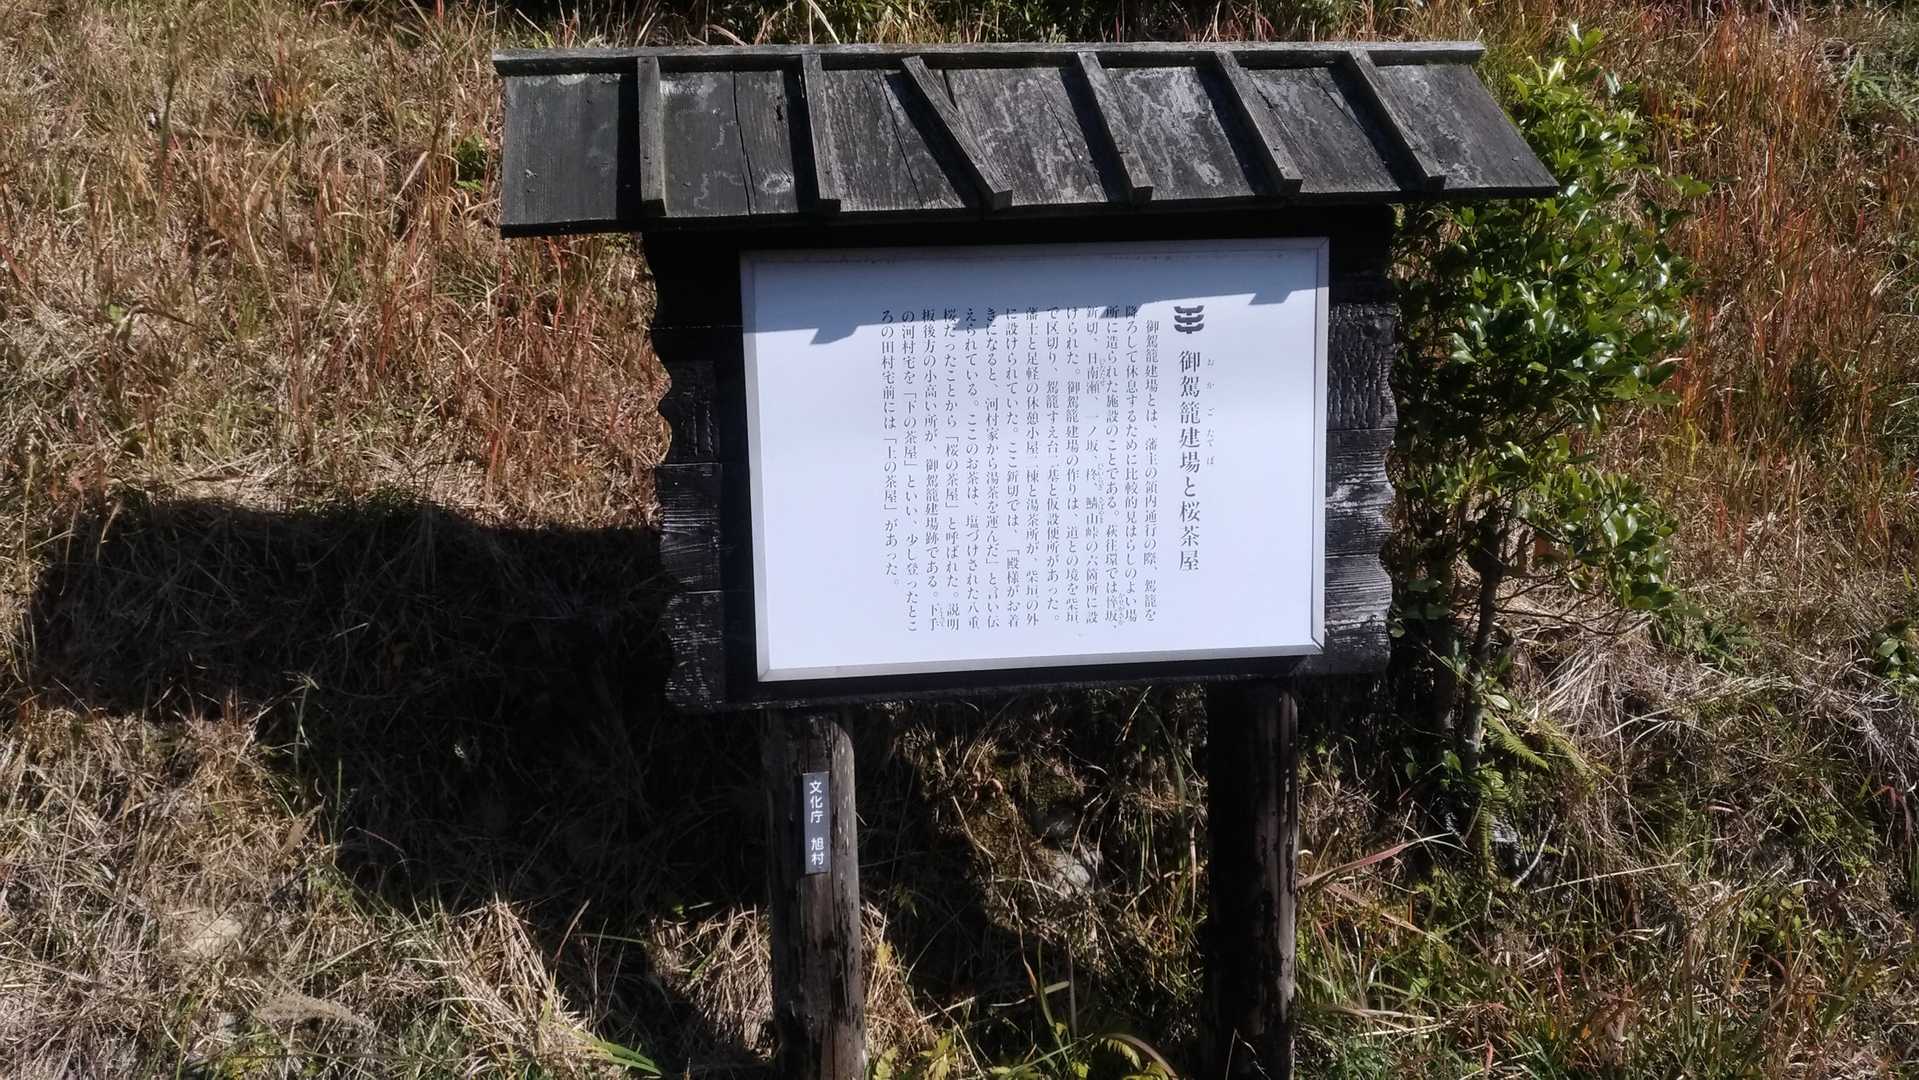 御駕籠建場と桜茶屋
おかごたてば
御駕籠建場とは、藩主の領内通行の際、駕籠を
降ろして休息するために比較的見はらしのよい場
所に造られた施設のことである。萩往環では悴坂、
釿切、日南瀬、一ノ坂、柊、鯖山峠の六箇所に設
けられた。御駕籠建場の作りは、道との境を柴垣
で区切り、駕籠すえ台一基と仮設便所があった。
藩士と足軽の休憩小屋二棟と湯茶所が、柴垣の外
に設けられていた。ここ釿切では、「殿様がお着
きになると、河村家から湯茶を運んだ」と言い伝
えられている。ここのお茶は、塩づけされた八重
桜だったことから「桜の茶屋」と呼ばれた。説明
板後方の小高い所が、御駕籠建場跡である。下手
の河村宅を「下の茶屋」といい、少し登ったとこ
ろの田村宅前には「上の茶屋」があった。
文化庁 旭村